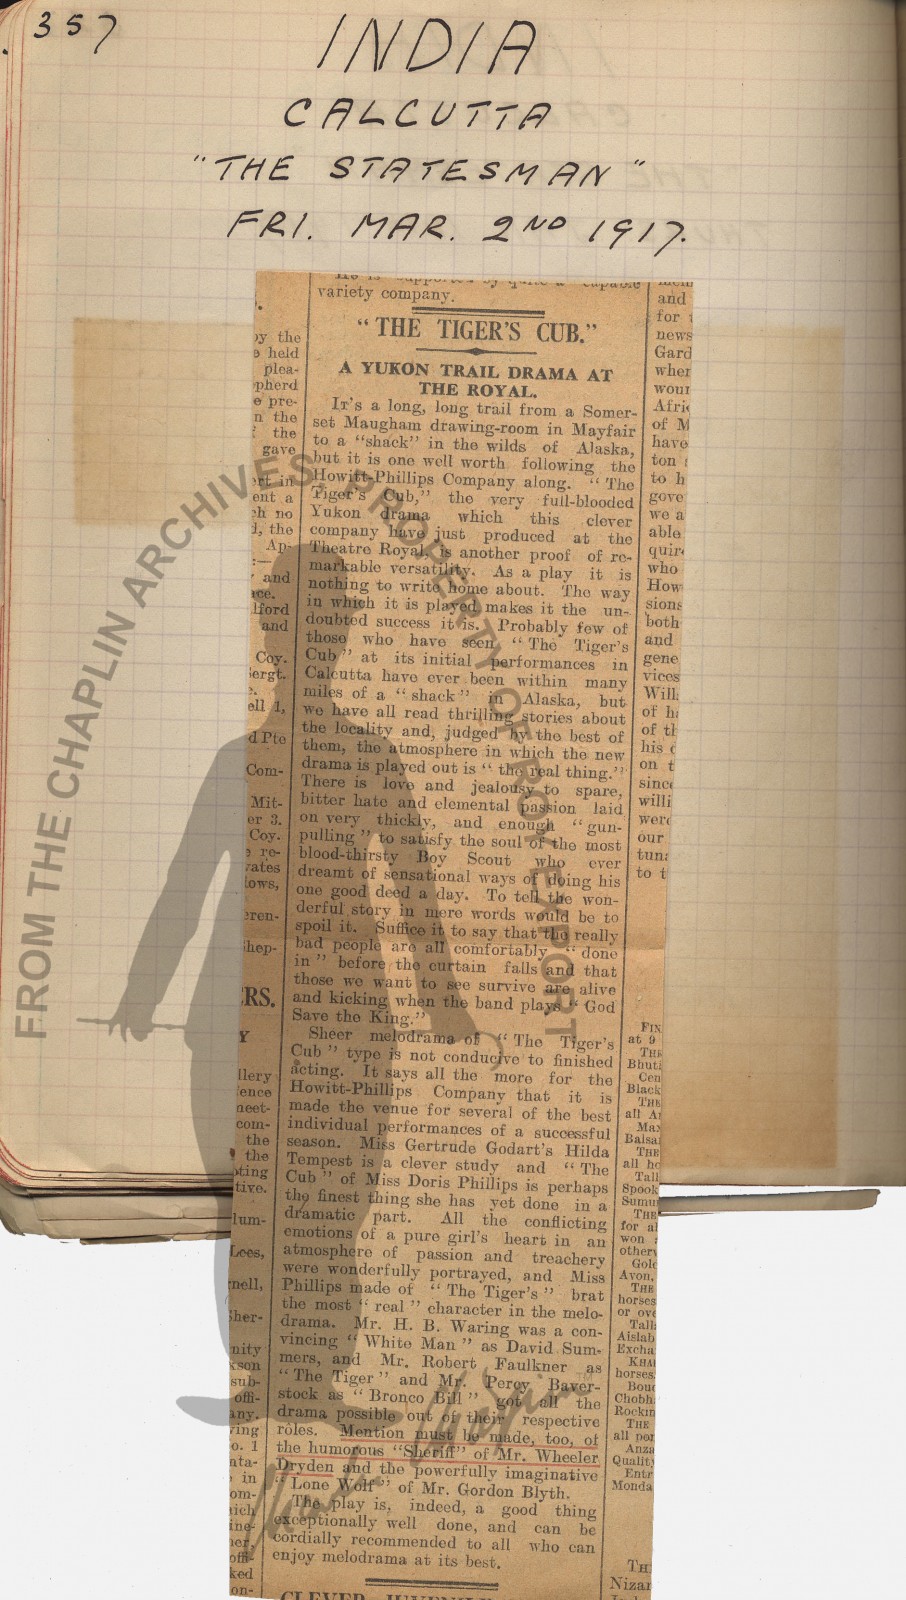 357
INDIA
CALCUTTA
"THE STATESMAN"
FRI. MAR. 2ND 1917.
variety company.
"THE TIGER'S CUB."
A YUKON TRAIL DRAMA AT
THE ROYAL.
It's a long, long trail from a Somer-
set Maugham drawing-room in Mayfair
to a "shack" in the wilds of Alaska,
but it is one well worth following the
Howitt-Phillips Company along. "The
Tiger's Cub," the very full-blooded
Yukon drama which this clever
company have just produced at the
Theatre Royal, is another proof of re-
markable versatility. As a play it is
nothing to write home about. The way
in which it is played makes it the un-
doubted success it is. Probably few of
those who have seen "The Tiger's
Cub" at its initial performances in
Calcutta have ever been within many
miles of a "shack" in Alaska, but
we have all read thrilling stories about
the locality and, judged by the best of
them, the atmosphere in which the new
drama is played out is "the real thing."
There is love and jealousy to spare,
bitter hate and elemental passion laid
on very thickly, and enough "gun-
pulling" to satisfy the soul of the most
blood-thirsty Boy Scout who ever
dreamt of sensational ways of doing his
one good deed a day. To tell the won-
derful story in mere words would be to
spoil it. Suffice it to say that the really
bad people are all comfortably "done
in" before the curtain falls and that
those we want to see survive are alive
and kicking when the band plays "God
Save the King."
Sheer melodrama of "The Tiger's
Cub" type is not conducive to finished
acting. It says all the more for the
Howitt-Phillips Company that it is
made the venue for several of the best
individual performances of a successful
season. Miss Gertrude Godart's Hilda
Tempest is a clever study and "The
Cub" of Miss Doris Phillips is perhaps
the finest thing she has yet done in a
dramatic part. All the conflicting
emotions of a pure girl's heart in an
atmosphere of passion and treachery
were wonderfully portrayed, and Miss
Phillips made of "The Tiger's" brat
the most "real" character in the melo-
drama. Mr. H. B. Waring was a con-
vincing "White Man" as David Sum-
mers, and Mr. Robert Faulkner as
"The Tiger" and Mr. Percy Baver-
stock as "Bronco Bill" got all the
drama possible out of their respective
rôles. Mention must be made, too, of
the humorous "Sheriff" of Mr. Wheeler
Dryden and the powerfully imaginative
"Lone Wolf" of Mr. Gordon Blyth.
The play is, indeed, a good thing
exceptionally well done, and can be
cordially recommended to all who can
enjoy melodrama at its best.
FROM THE CHAPLIN ARCHIVES, PROPERTY OF ROY EXPORT